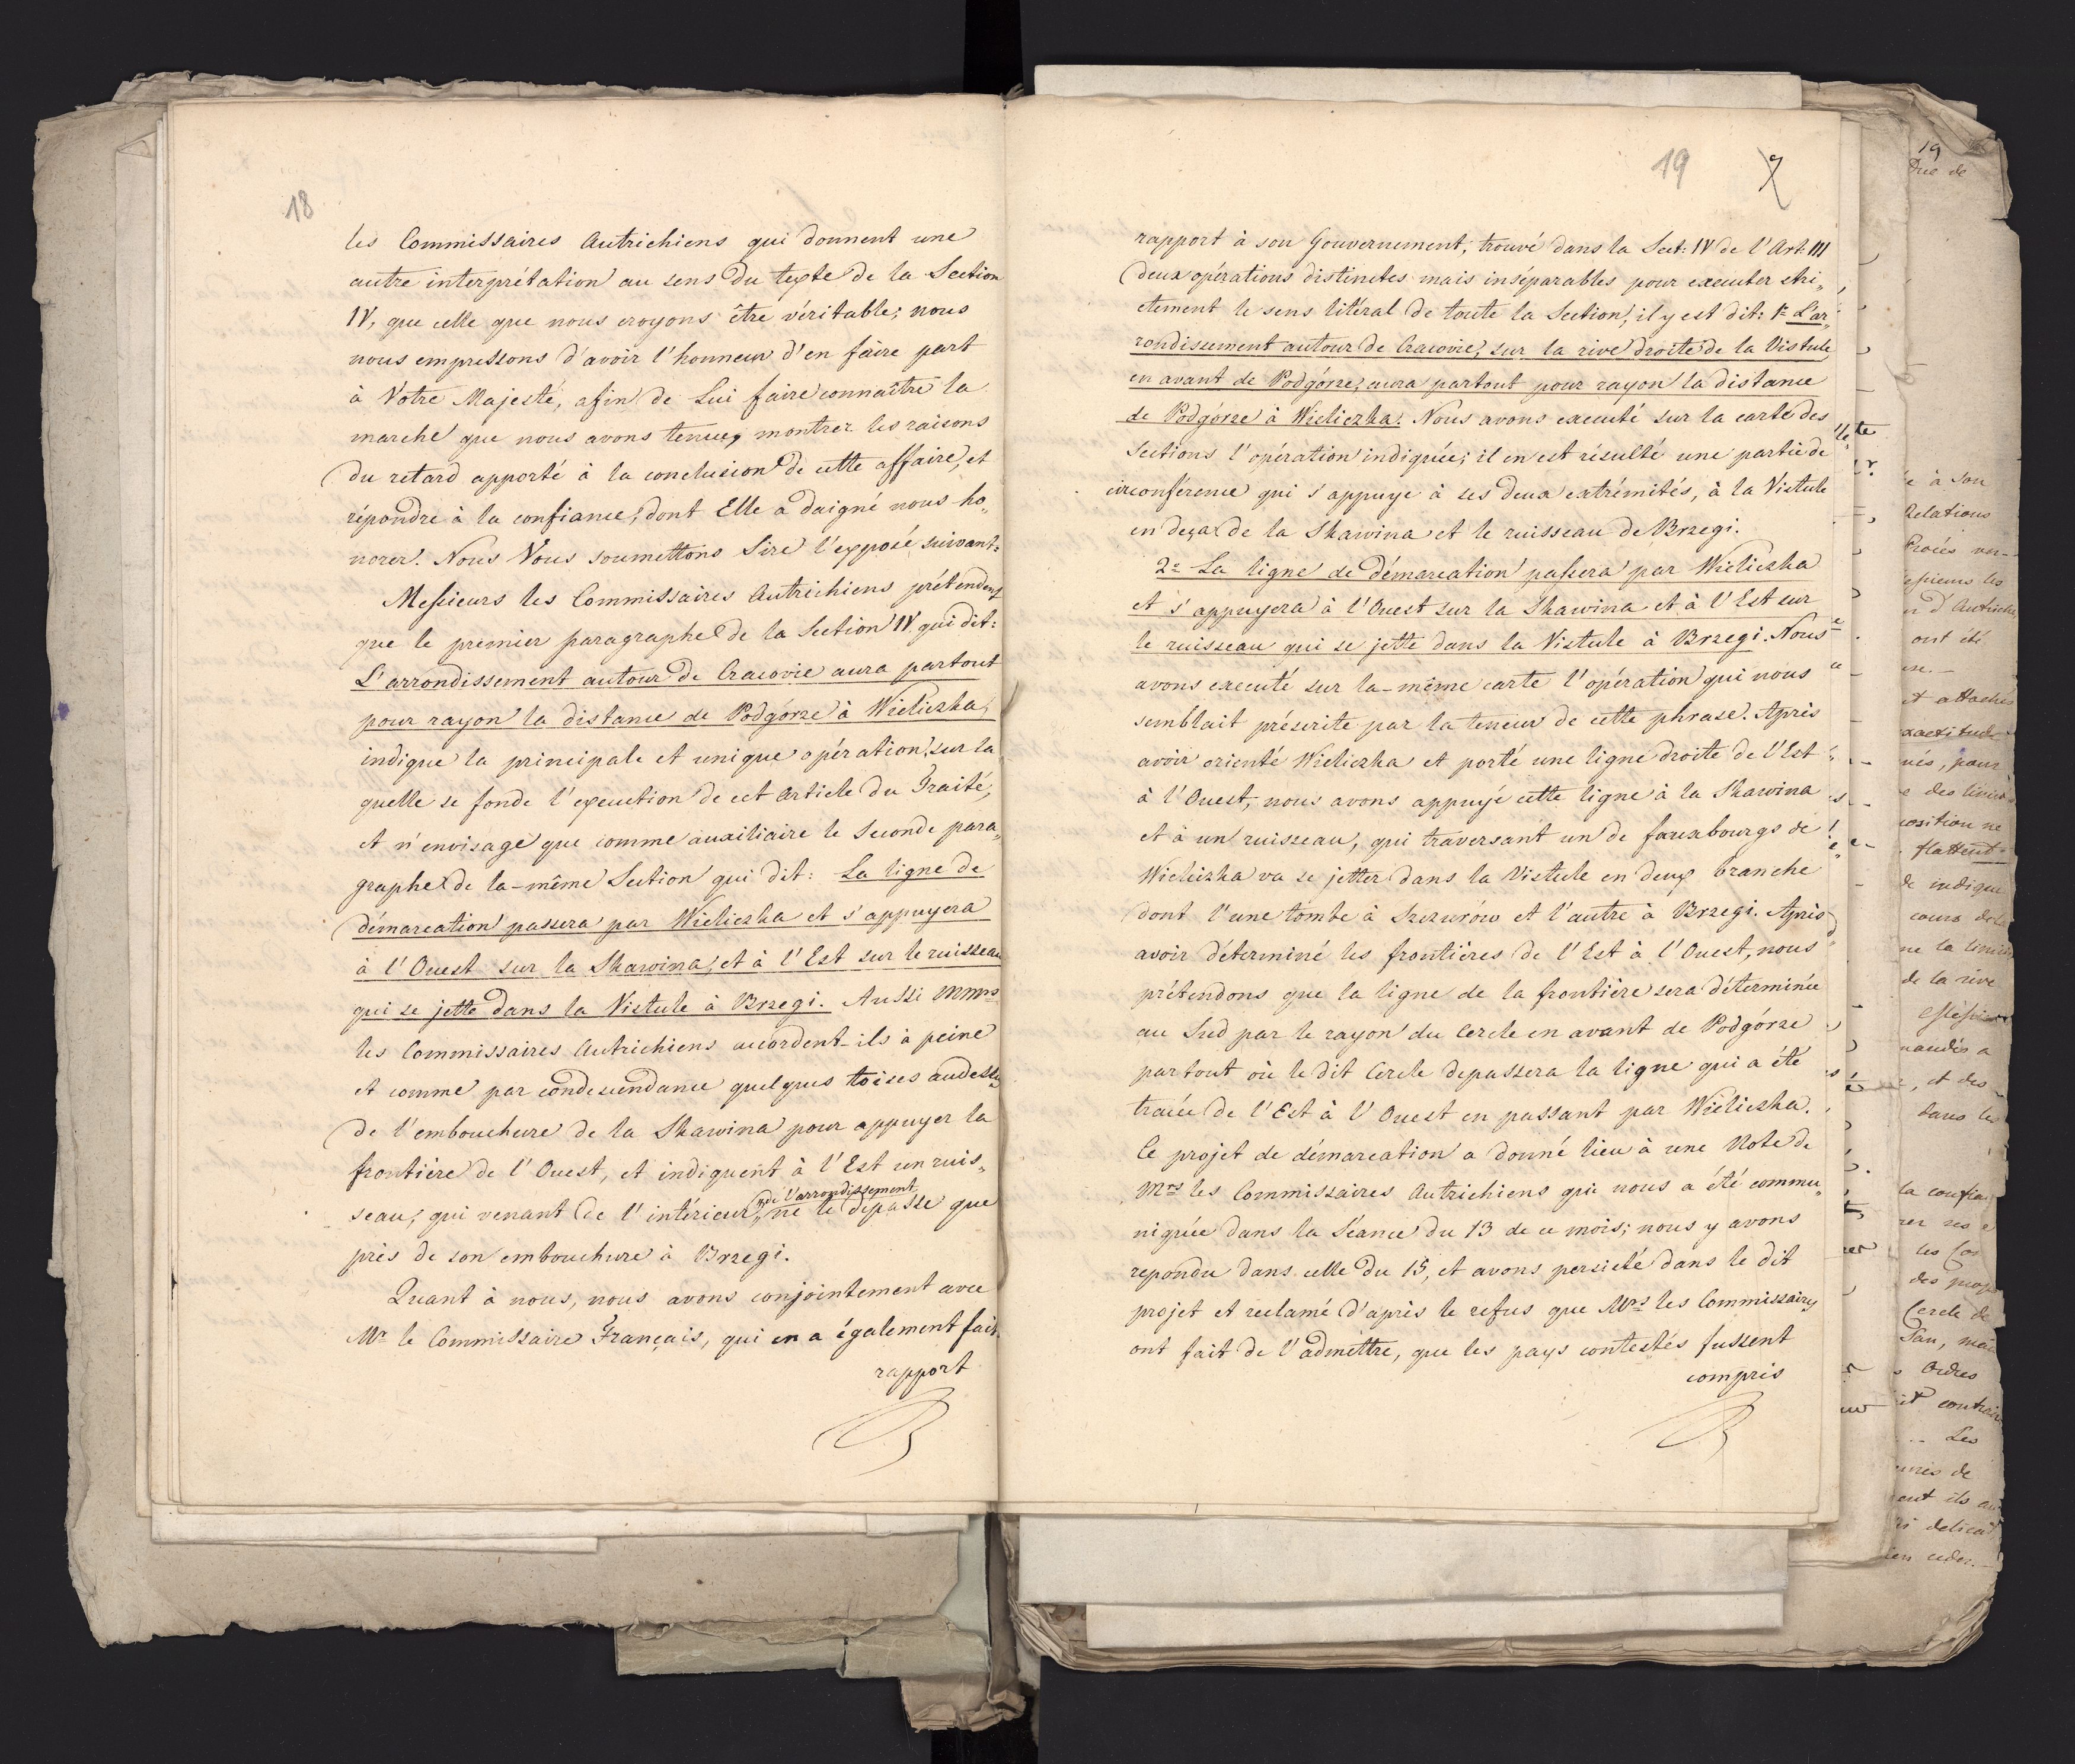 18
les Commissaires Autrichiens qui donnent une
autre interprétation au sens du texte de la Section
IV, que celle que nous croyons être véritable; nous
nous empressons d'avoir l'honneur d'en faire part
à Votre Majesté, afin de Lui faire connaître la
marche que nous avons tenue, montrer les raisons
du retard apporté à la conclusion de cette affaire, et
répondre à la confiance, dont Elle a daigné nous ho„
norer. Nous Vous soumettons Sire l'exposé suivant:
Messieurs les Commissaires Autrichiens prétendent
que le premier paragraphe de la Section IV qui dit:
L'arrondissement autour de Cracovie aura partout
pour rayon la distance de Podgórze à Wieliczka,
indique la principale et unique opération, sur la
quelle se fonde l'execution de cet Article du Traité,
et n'envisage que comme auxiliaire le Seconde para„
graphe de la-même Section qui dit: La ligne de
démarcation passera par Wieliczka et s'appuyera
à l'Ouest sur la Skawina, et à l'Est sur le ruisseau
qui se jette dans la Vistule à Brzegi. Aussi Mmrs
les Commissaires Autrichiens accordent-ils à peine
et comme par condescendance quelques toises audessus
de l'embouchure de la Skawina pour appuyer la
frontière de l'Ouest, et indiquent à l'Est un ruis„
de l'arrondissement
seau, qui venant de l'intérieur, ne le depasse que
près de son embouchure à Brzegi.
Quant à nous, nous avons conjointement avec
Mr le Commissaire Français, qui en a également fait
rapport
19
rapport à son Gouvernement, trouvé dans la Sect: IV de l'Art: III
deux opérations distinctes mais inséparables pour executer stri„
ctement le sens litéral de toute la Section, il y est dit: 1º L'ar„
rondissement autour de Cracovie, sur la rive droite de la Vistule
en avant de Podgórze, aura partout pour rayon la distance
de Podgórze à Wieliczka. Nous avons executé sur la carte des
Sections l'opération indiquée; il en est résulté une partie de
circonférence qui s'appuye à ses deux extrémités, à la Vistule
en deça de la Skawina et le ruisseau de Brzegi.
2º La ligne de démarcation passera par Wieliczka
et s'appuyera à l'Ouest sur la Skawina et à l'Est sur
le ruisseau qui se jette dans la Vistule à Brzegi. Nous
avons executé sur la-même carte l'opération qui nous
semblait préscrite par la teneur de cette phrase. Après
avoir orienté Wieliczka et porté une ligne droite de l'Est
à l'Ouest, nous avons appuyé cette ligne à la Skawina
et à un ruisseau, qui traversant un de fauxbourgs de
Wieliczka va se jetter dans la Vistule en deux branche
dont l'une tombe à Szczurów et l'autre à Brzegi. Après
avoir déterminé les frontières de l'Est à l'Ouest, nous
prétendons que la ligne de la frontière sera déterminée
au Sud par le rayon du Cercle en avant de Podgórze
partout où le dit Cercle depassera la ligne qui a été
tracée de l'Est à l'Ouest en passant par Wieliczka.
Ce projet de démarcation a donné lieu à une Note de
Mrs les Commissaires Autrichiens qui nous a été commu„
niquée dans la Séance du 13 de ce mois; nous y avons
repondu dans celle du 15, et avons persisté dans le dit
projet et reclamé d'après le refus que Mrs les Commissaires
ont fait de l'admettre, que les pays contestés fussent
compris
19
à son
Relations
ont été
et attachés
pour
flattent
de la rive
et des
dans les
Cercle de
Ordres
Les